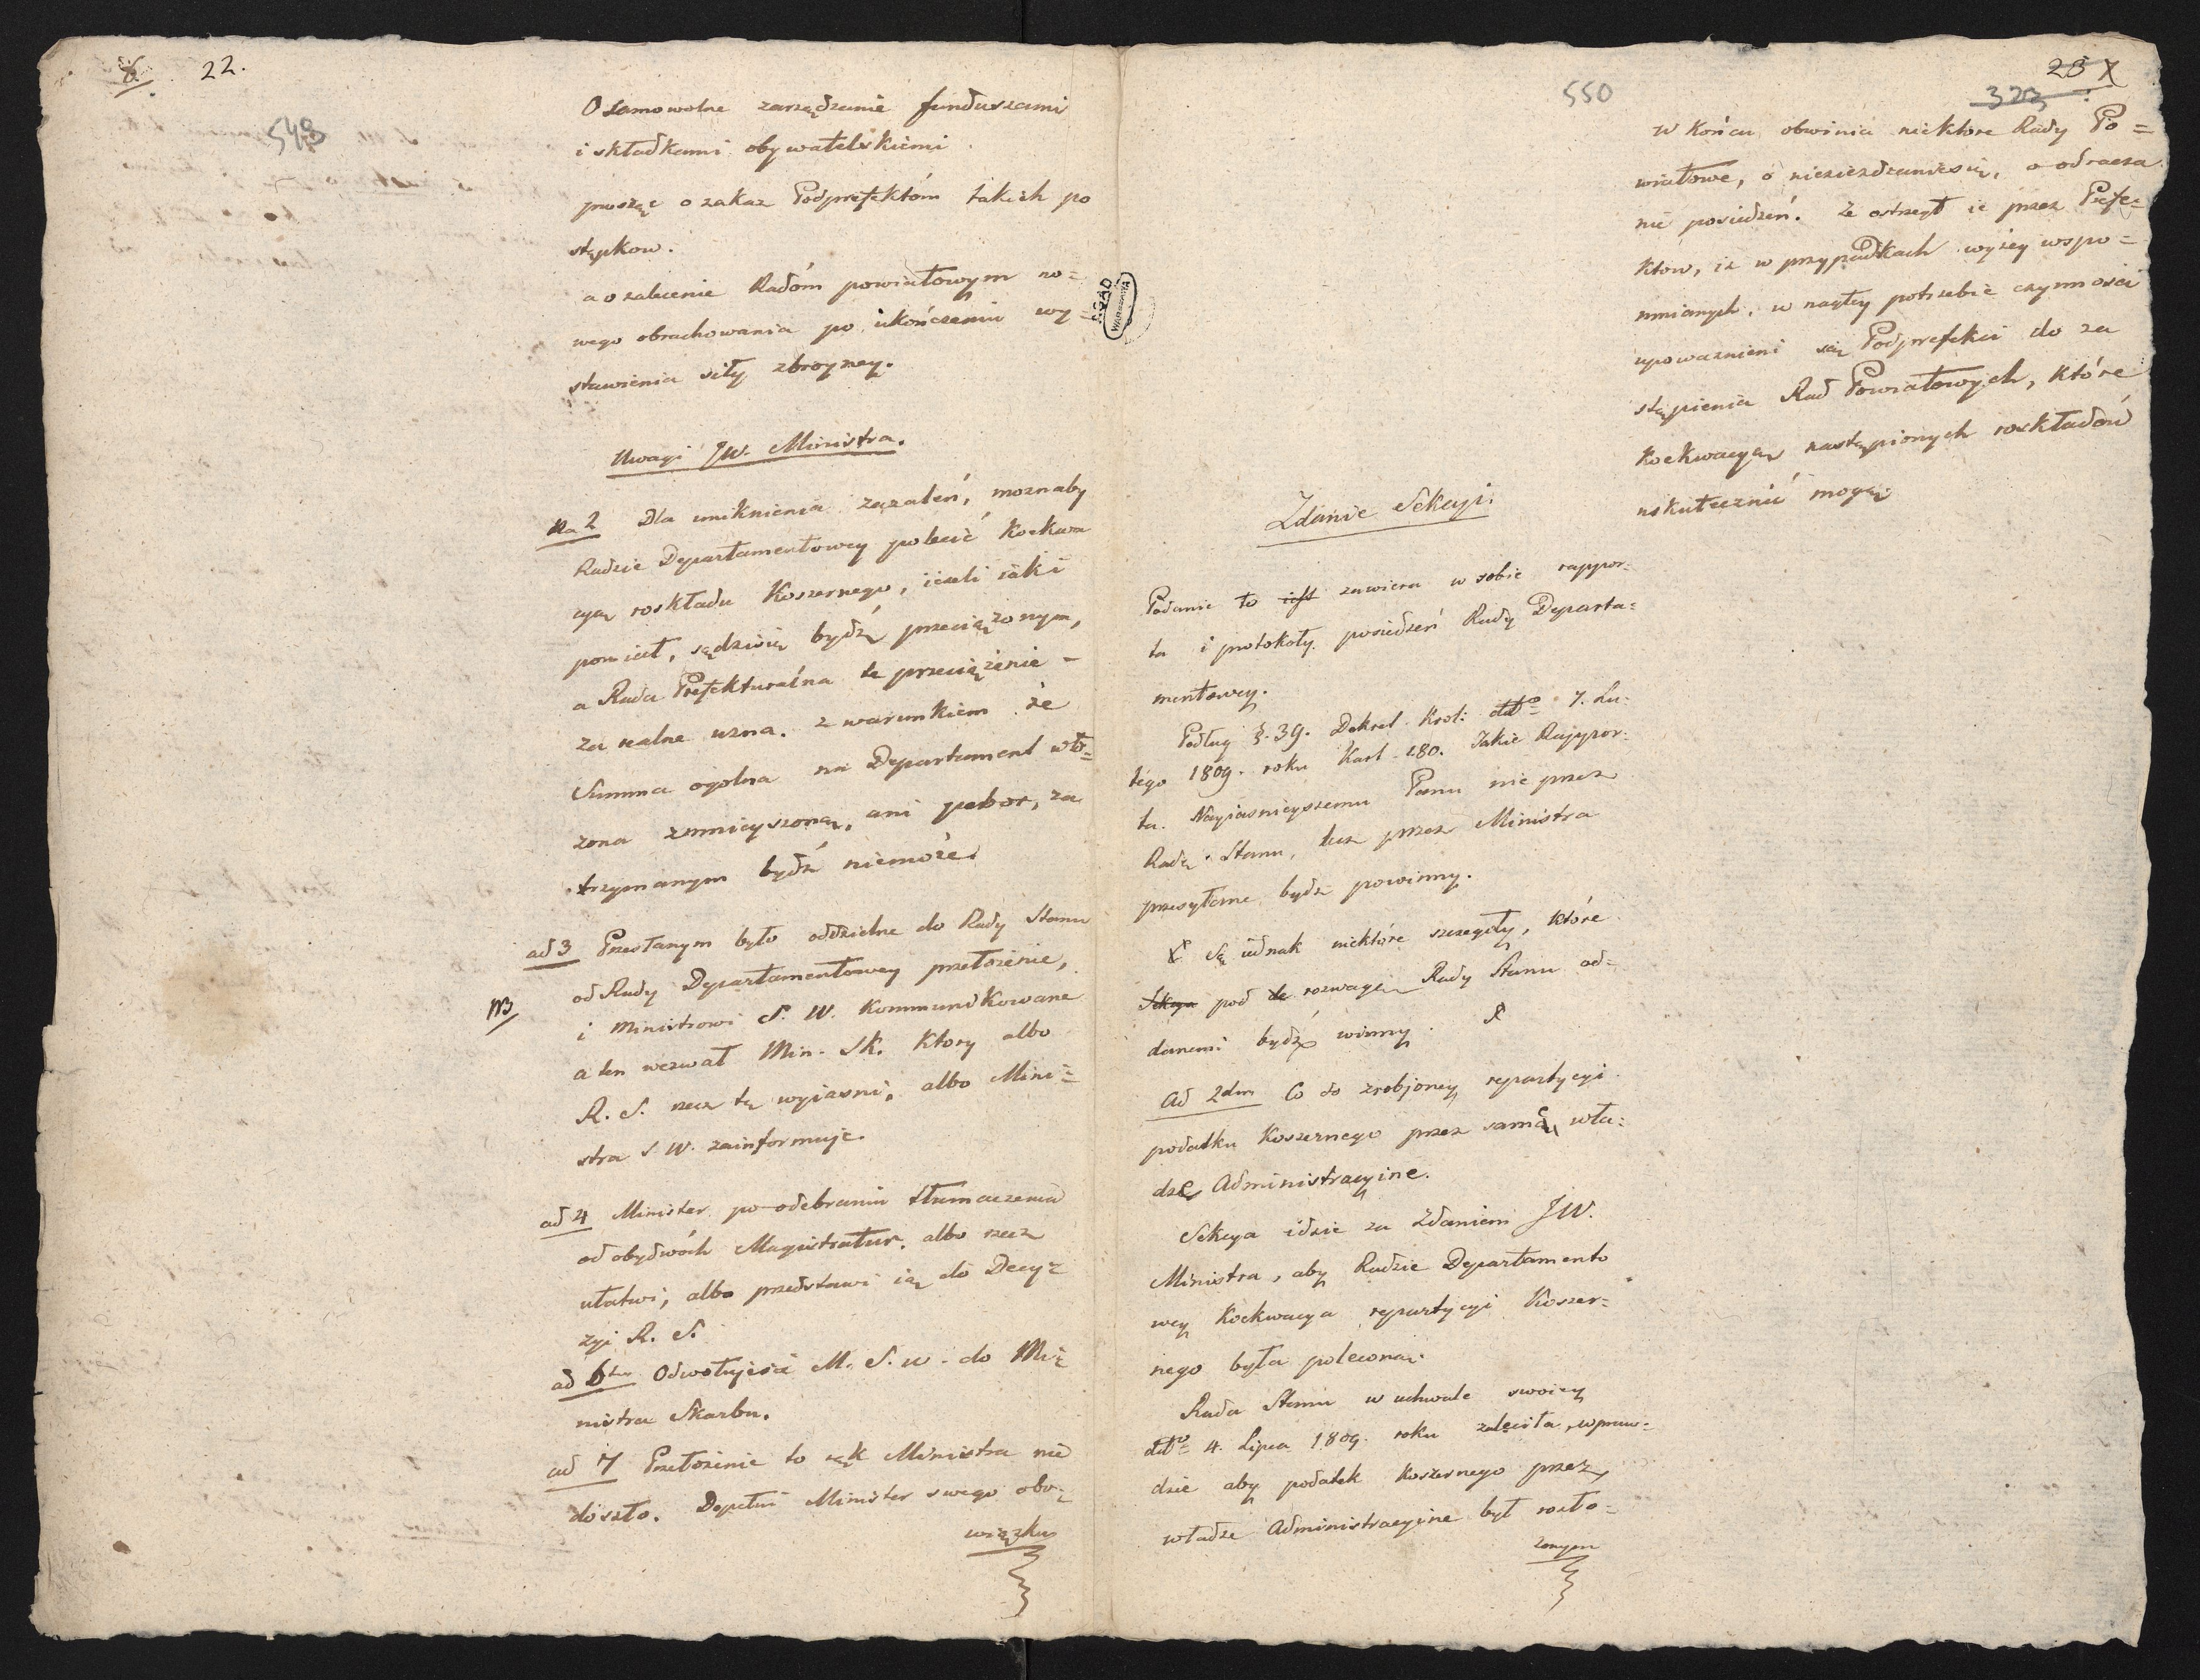 22.
549
O samowolne zarządzanie funduszami
i składkami obywatelskiemi.
prosząc o zakaz Podprefektóm takich po
stępkow.
a o zalecenie Radóm powiatowym no=
wego obrachowania po ukończeniu wy=
stawienia siły zbroyney.
Uwagi JW. Ministra.
Na 2 Dla uniknienia zażaleń, moznaby
Radzie Departamentowey polecić Koekwa
cyą roskładu Koszernego, iezeli iaki
powiat, sądzisię bydź przeciążonym,
a Rada Prefekturalna te przeciążenie –
za realne uzna. z warunkiem że
Summa ogolna na Departament wło=
zona zmnieyszoną, ani pobor, za
trzymanym bydź niemoże.
ad 3 Przesłanym było oddzielne do Rady Stanu
NB
od Rady Departamentowey przełożenie,
i Ministrowi S. W. Kommunikowane
a ten wezwał Min. Sk. Ktory albo
R. S. rzecz tę wyiasni, albo Mini=
stra S W. zainformuje.
ad 4 Minister po odebraniu tłumaczenia
od obydwóch Magistratur. albo rzecz
ułatwi, albo przedstawi ią do Decy=
zyi R. S.
ad 6tm Odwołujesię M. S. W. do Mi=
nistra Skarbu.
ad 7 Przełożenie to rąk Ministra nie
doszło. Dopełni Minister swego obo=
wiązku
AGAD
WARSZAWA
550
23
323
W Końcu obwinia niektóre Rady Po=
wiatowe, o nieziezdzaniesię, o odracza
nie posiedzeń. Że ostrzegł ie przez Prefe=
ktow, iż w przypadkach wyżey wspo=
mnianych, w nagłey potrzebie czynności
upowaznieni są Podprefekci do za
stąpienia Rad Powiatowych, które
Koekwacyą nastąpionych roskładów
uskutecznić mogą.
Zdanie Sekcyi.
Podanie to iest zawiera w sobie rappor=
ta i protokoły posiedzeń Rady Departa=
mentowey.
Podług §. 39. Dekret. Krol: dtto 7. Lu=
tego 1809. roku Kart. 180. Takie Rappor=
ta. Nayiasnieyszemu Panu nie przez
Radę Stanu, lecz przez Ministra
przesyłane bydź powinny.
Są iednak niektóre szczegoły, które
Sekcya pod te rozwagę Rady Stanu od=
danemi bydź winny.
Ad 2dum Co do zrobioney repartycyi
podatku Koszernego przez samą wła=
dzę Administracyine.
Sekcya idzie za Zdaniem JW.
Ministra, aby Radzie Departamento
wey Koekwacya repartycyi Koszer=
nego była poleconą.
Rada Stanu w uchwale swoiey
dtto 4. Lipca 1809. roku zaleciła, wpraw=
dzie aby podatek Koszernego przez
władze Administracyine był rozło=
zonym